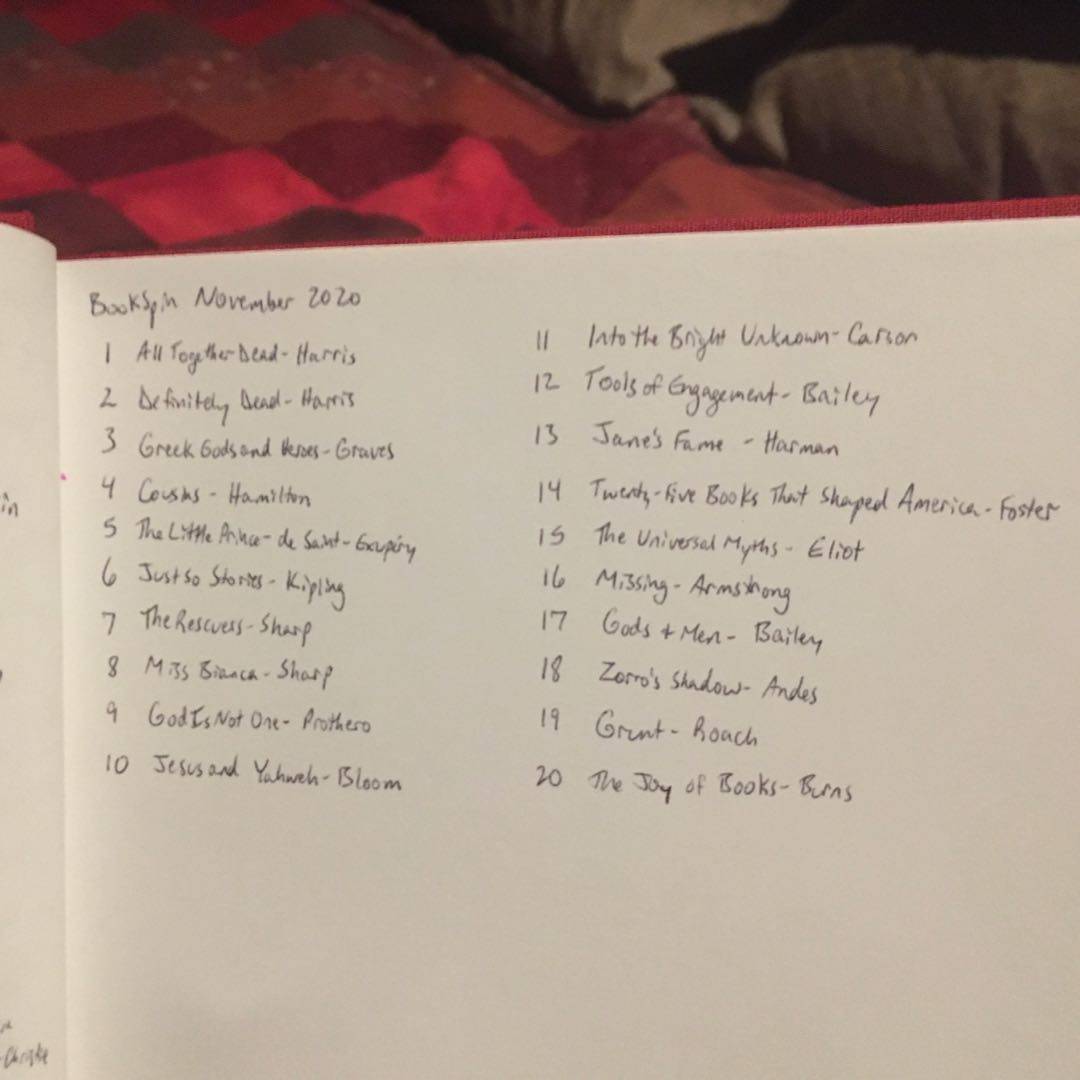 BookSpin November 2020
1 All Together Dead - Harris
2 Definitely Dead - Harris
3 Greek Gods and Heroes - Graves
4 Cousins - Hamilton
5 The Little Prince - de Saint-Exupéry
6 Just So Stories - Kipling
7 The Rescuers - Sharp
8 Miss Bianca - Sharp
9 God Is Not One - Prothero
10 Jesus and Yahweh - Bloom
11 Into the Bright Unknown - Carson
12 Tools of Engagement - Bailey
13 Jane's Fame - Harman
14 Twenty-Five Books That Shaped America - Foster
15 The Universal Myths - Eliot
16 Missing - Armstrong
17 Gods + Men - Bailey
18 Zorro's Shadow - Andes
19 Grunt - Roach
20 The Joy of Books - Burns
in
- Christie